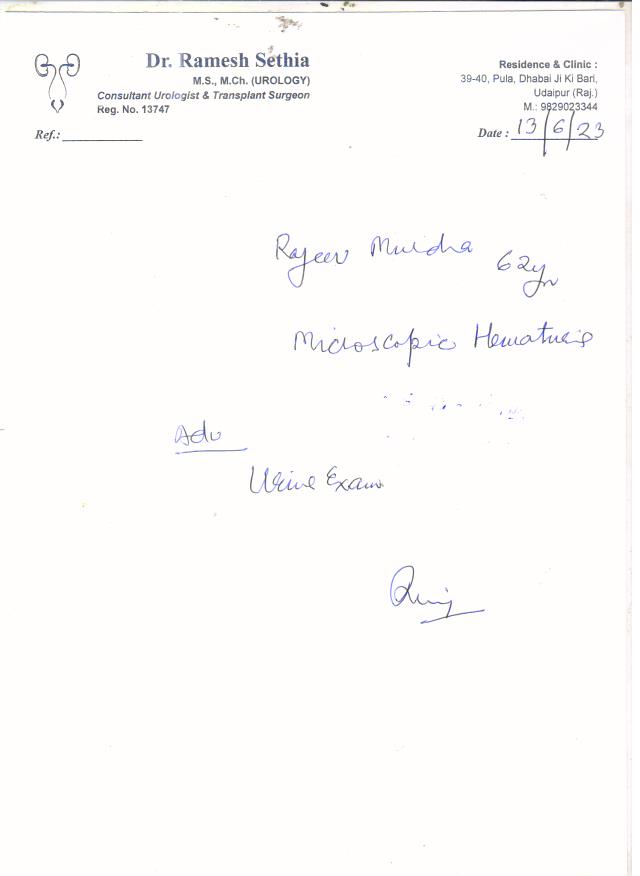 Dr. Ramesh Sethia
M.S., M.Ch. (UROLOGY)
Consultant Urologist & Transplant Surgeon
Reg. No. 13747
Ref.:
Residence & Clinic :
39-40, Pula, Dhabai Ji Ki Bari,
Udaipur (Raj.)
M.: 9829023344
Date : 13/6/23
Rajeev 62yr
Microscopic Hematuria
Adv
Urine Exam